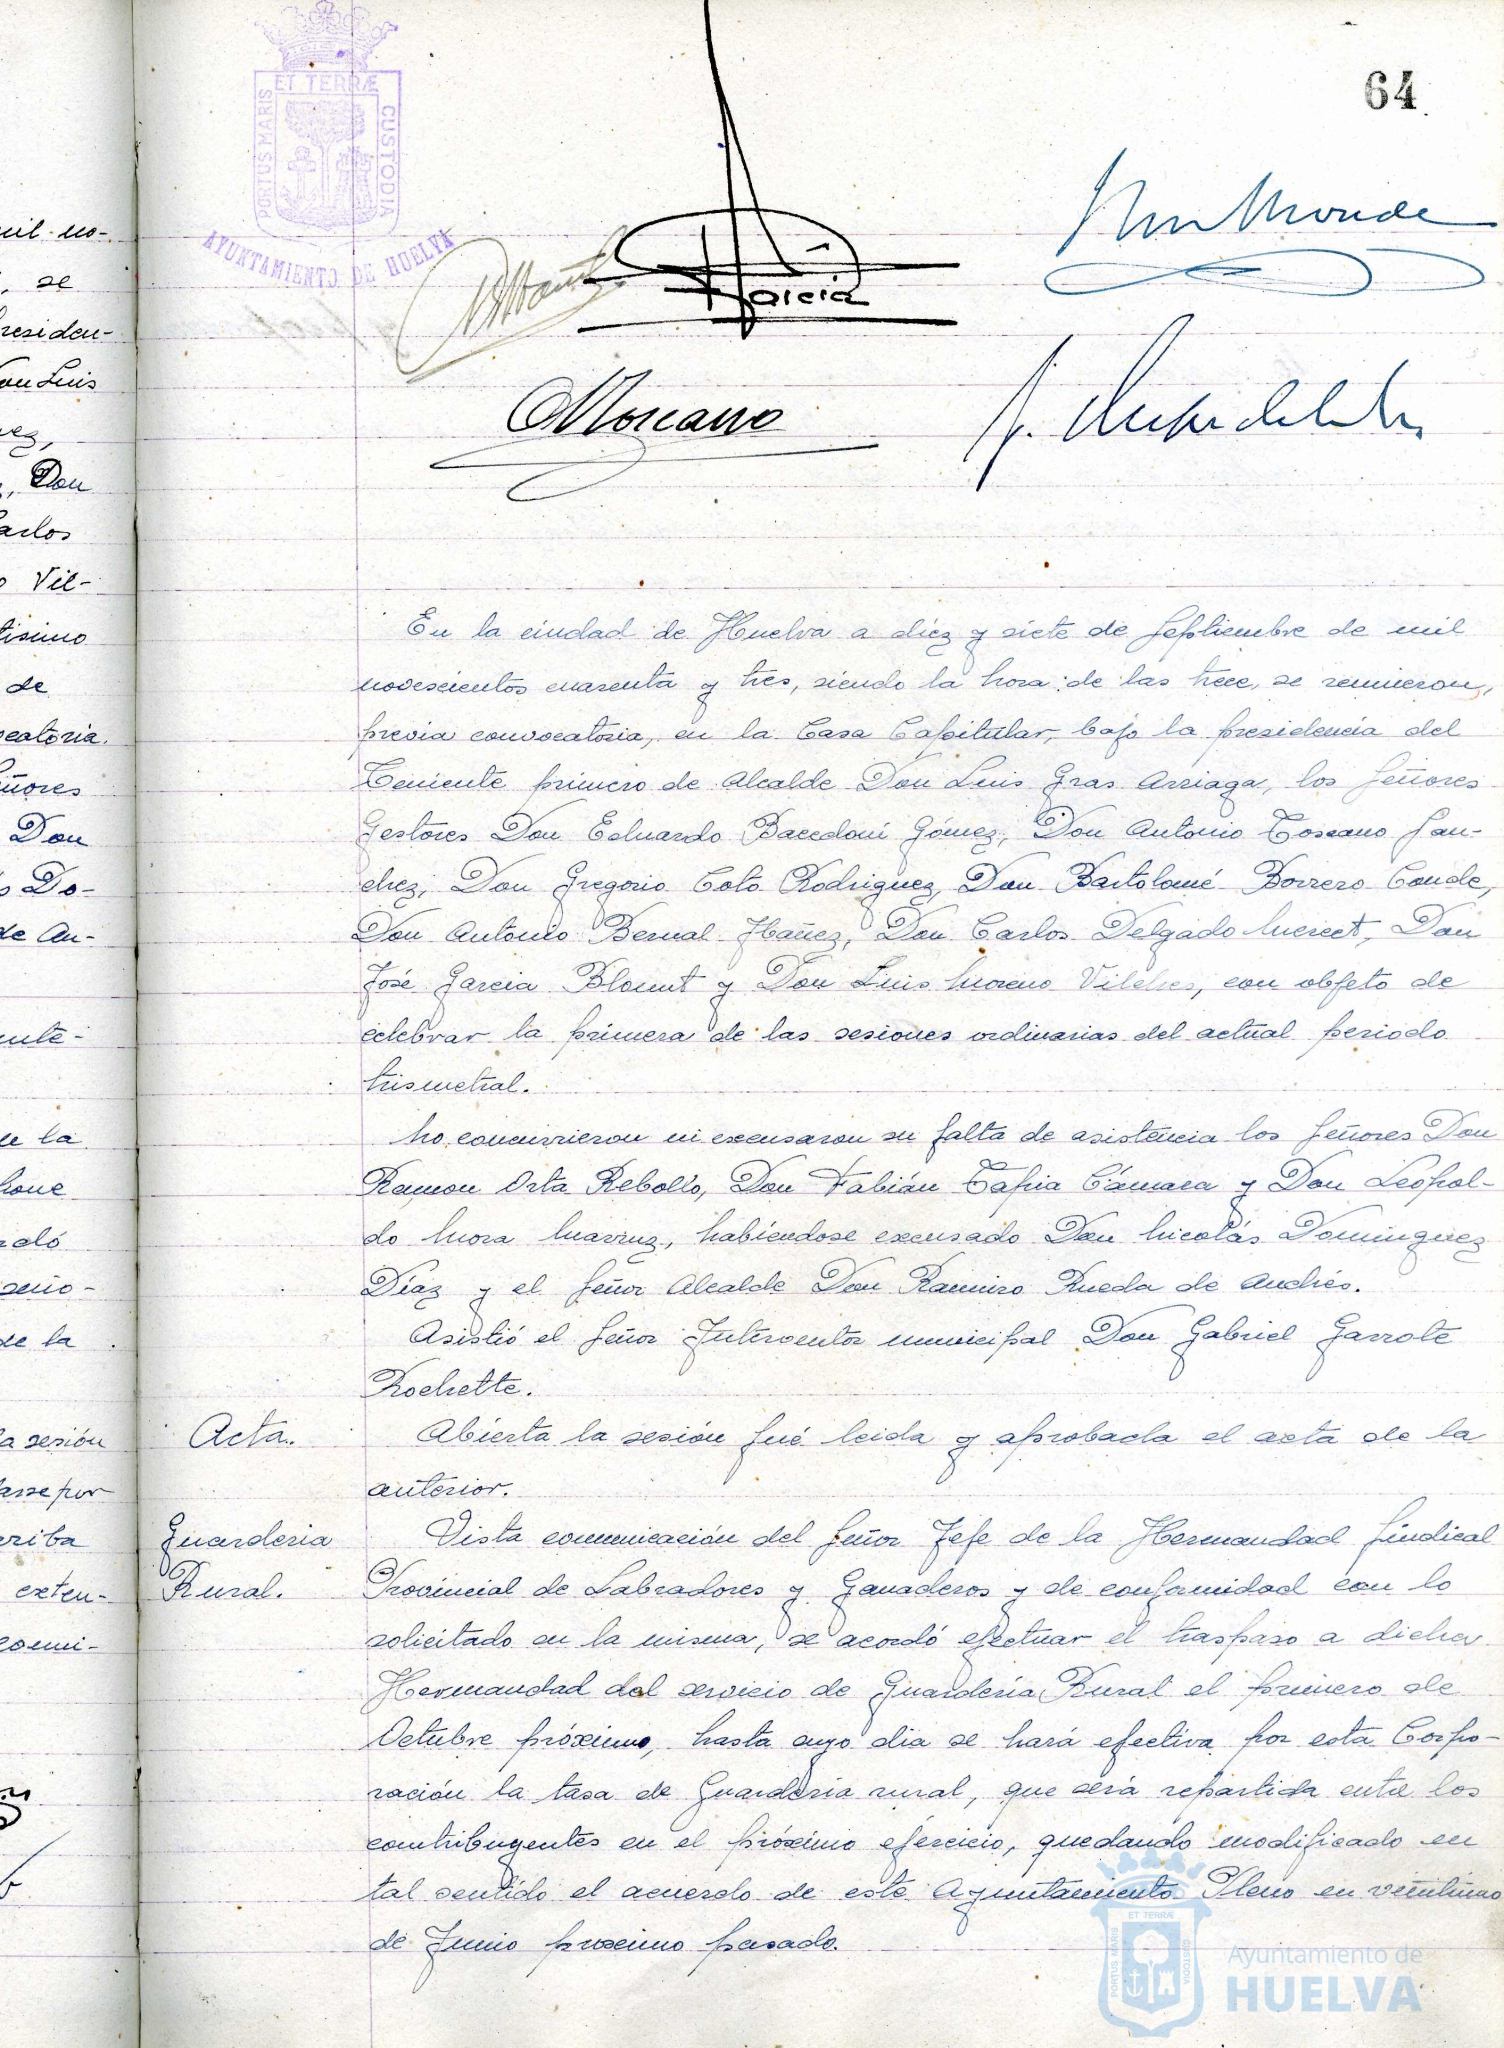 64
ET TERRÆ
PORTUS MARIS
CUSTODIA
AYUNTAMIENTO DE HUELVA
García
En la ciudad de Huelva a diez y siete de Septiembre de mil
novescientos cuarenta y tres, siendo la hora de las trece, se reunieron,
previa convocatoria, en la Casa Capitular, bajo la presidencia del
Teniente primero de Alcalde Don Luis Gras Arriaga, los Señores
Gestores Don Eduardo Bacedoni Gómez, Don Antonio Toscano San-
chez, Don Gregorio Coto Rodriguez, Don Bartolomé Borrero Conde,
Don Antonio Bernal Ibañez, Don Carlos Delgado Merect, Don
José Garcia Blount y Don Luis Moreno Vilches, con objeto de
celebrar la primera de las sesiones ordinarias del actual periodo
trismetral.
No concurrieron ni excusaron su falta de asistencia los Señores Don
Ramon Orta Rebollo, Don Fabián Tapia Cámara y Don Leopol-
do Mora, habiendose excusado Don Nicolás Dominguez
Díaz y el Señor Alcalde Don Ramiro Rueda de Andrés.
Asistió el Señor Interventor municipal Don Gabriel Garrote
Rochette.
Acta. Abierta la sesión fué leida y aprobada el acta de la
anterior.
Guarderia Vista comunicación del Señor Jefe de la Hermandad Sindical
Rural. Provincial de Labradores y Ganaderos y de conformidad con lo
solicitado en la misma, se acordó efectuar el traspaso a dicha
Hermandad del servicio de Guardería Rural el primero de
Octubre próximo, hasta cuyo dia se hará efectiva por esta Corpo-
ración la tasa de Guarderia rural, que será repartida entre los
contribuyentes en el próximo ejercicio, quedando modificado en
tal sentido el acuerdo de este Ayuntamiento Pleno en veintiuno
de Junio proximo pasado.
ET TERRÆ
PORTUS MARIS
CUSTODIA
Ayuntamiento de
HUELVA